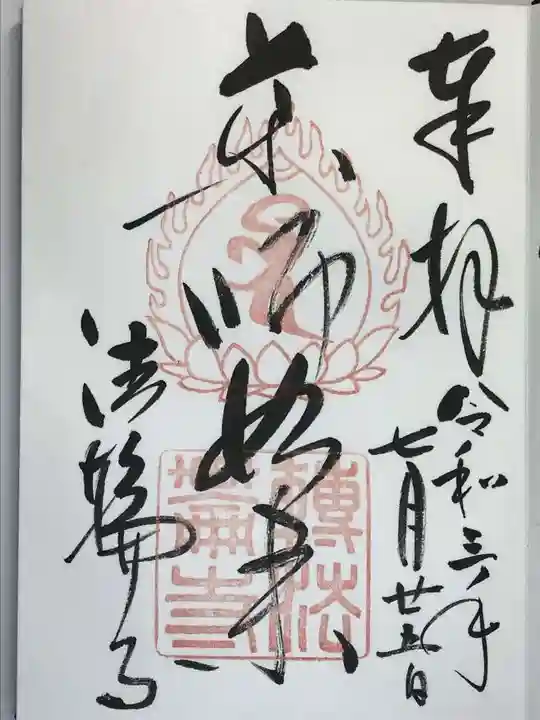 奉拝
令和三年
七月廿五日
薬師如来
法輪寺